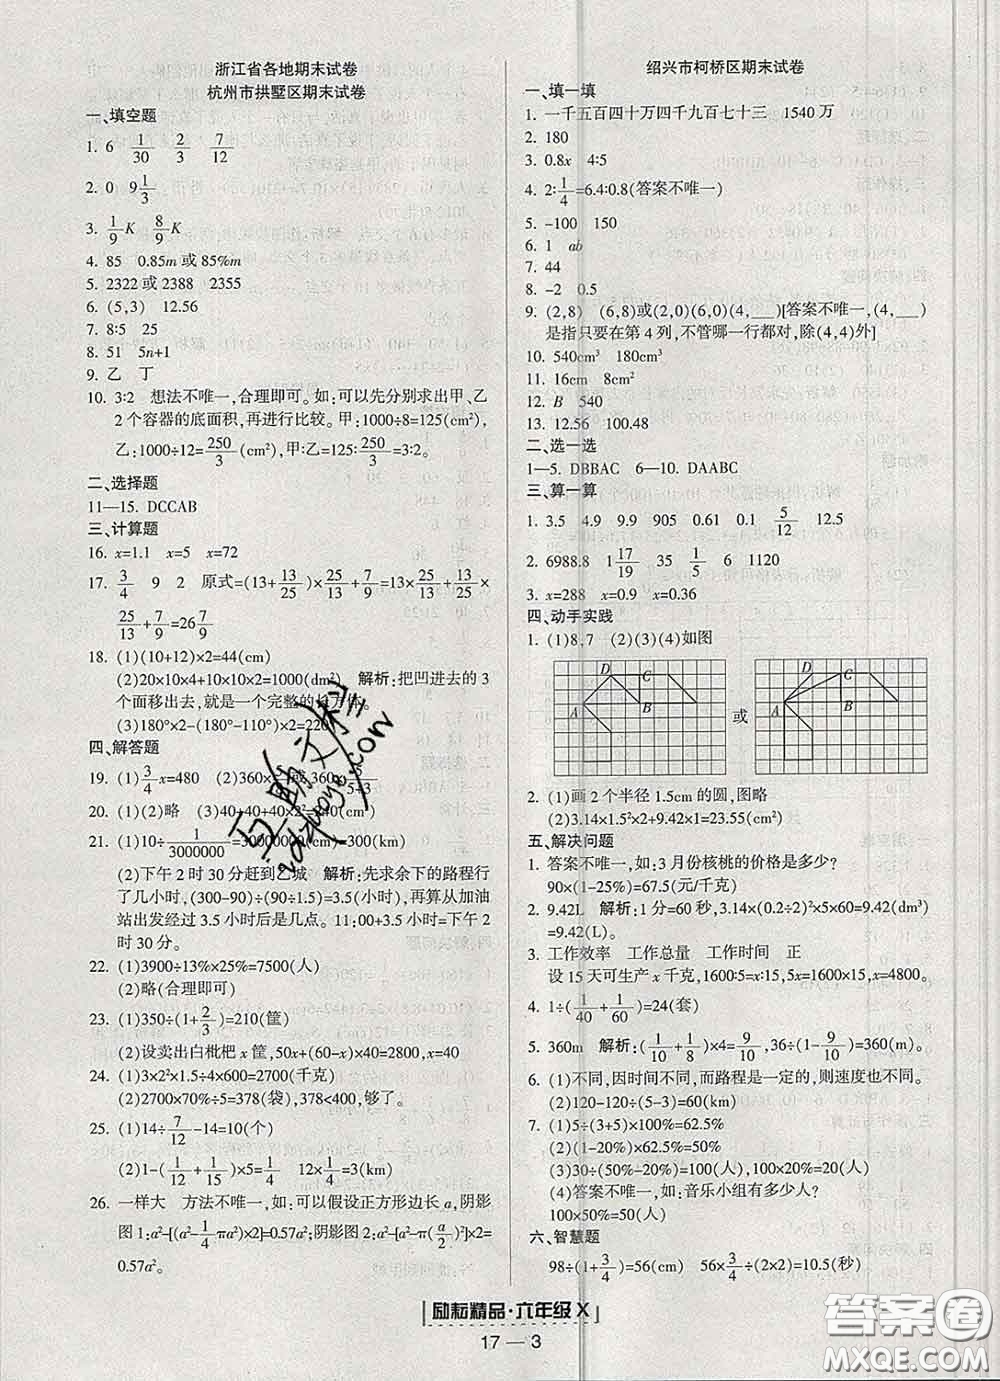 浙江省各地期末试卷
杭州市拱墅区期末试卷
一、填空题
1. 6 1/30 2/3 7/12
2. 0 9 1/3
3. 1/9 K 8/9 K
4. 85 0.85m 或 85%m
5. 2322 或 2388 2355
6. (5,3) 12.56
7. 8∶5 25
8. 51 5n+1
9. 乙 丁
10. 3∶2 想法不唯一,合理即可。如:可以先分别求出甲、乙
2 个容器的底面积,再进行比较。甲:1000÷8=125(cm²),
乙:1000÷12=250/3(cm²),甲∶乙=125∶250/3=3∶2。
二、选择题
11—15. DCCAB
三、计算题
16. x=1.1 x=5 x=72
17. 3/4 9 2 原式=(13+13/25)×25/13+7/9=13×25/13+13/25×
25/13+7/9=26 7/9
18. (1)(10+12)×2=44(cm)
(2)20×10×4+10×10×2=1000(dm²) 解析:把凹进去的 3
个面移出去,就是一个完整的长方体。
(3)180°×2-(180°-110°)×2=220°
四、解答题
19. (1)3/4 x=480 (2)360× 或 360× 5+3
20. (1)(2)略 (3)40+40+40×2=
21. (1)10÷1/3000000=30000000(cm)=300(km)
(2)下午 2 时 30 分赶到乙城 解析:先求余下的路程行
了几小时,(300-90)÷(90÷1.5)=3.5(小时),再算从加油
站出发经过 3.5 小时后是几点。11:00+3.5(小时)=下午 2
时 30 分。
22. (1)3900÷13%×25%=7500(人)
(2)略(合理即可)
23. (1)350÷(1+2/3)=210(筐)
(2)设卖出白枇杷 x 筐,50x+(60-x)×40=2800,x=40
24. (1)3×2²×1.5÷4×600=2700(千克)
(2)2700×70%÷5=378(袋),378<400,够了。
25. (1)14÷7/12-14=10(个)
(2)(1-(1/12+1/15)×5=1/4 12×1/4=3(km)
26. 一样大 方法不唯一,如:可以假设正方形边长 a,阴影
图 1:a²-[(a²-1/4πa²)×2]=0.57a²;阴影图 2:a²-[a²-π(a/2)²]×2=
0.57a²。
绍兴市柯桥区期末试卷
一、填一填
1. 一千五百四十万四千九百七十三 1540 万
2. 180
3. 0.8x 4∶5
4. 2∶1/4=6.4∶0.8(答案不唯一)
5. -100 150
6. 1 ab
7. 44
8. -2 0.5
9. (2,8) (6,8)或(2,0)(6,0)(4,___)[答案不唯一,(4,___)
是指只要在第 4 列,不管哪一行都对,除(4,4)外]
10. 540cm³ 180cm³
11. 16cm 8cm²
12. B 540
13. 12.56 100.48
二、选一选
1—5. DBBAC 6—10. DAABC
三、算一算
1. 3.5 4.9 9.9 905 0.61 0.1 5/12 12.5
2. 6988.8 1 17/19 35 1/5 6 1120
3. x=288 x=0.9 x=0.36
四、动手实践
1. (1)8,7 (2)(3)(4)如图
D C A B 或 D C A B
2. (1)画 2 个半径 1.5cm 的圆,图略
(2)3.14×1.5²×2+9.42×1=23.55(cm²)
五、解决问题
1. 答案不唯一,如:3 月份核桃的价格是多少?
90×(1-25%)=67.5(元/千克)
2. 9.42L 解析:1 分=60 秒,3.14×(0.2÷2)²×5×60=9.42(dm³)
=9.42(L)。
3. 工作效率 工作总量 工作时间 正
设 15 天可生产 x 千克,1600∶5=x∶15,5x=1600×15,x=4800。
4. 1÷(1/40+1/60)=24(套)
5. 360m 解析:(1/10+1/8)×4=9/10,36÷(1-9/10)=360(m)。
6. (1)不同,因时间不同,而路程是一定的,则速度也不同。
(2)120÷(5-3)=60(km)
7. (1)5÷(3+5)×100%=62.5%
(2)(1-20%)×62.5%=50%
(3)30÷(50%-20%)=100(人)
(4)答案不唯一,如:音乐小组有多少人?
100×50%=50(人)
六、智慧题
98÷(1+3/4)=56(cm) 56×3/4÷(2×2)=10.5(秒)
励耘精品·六年级 X
17 — 3
答案圈
MXQE.COM